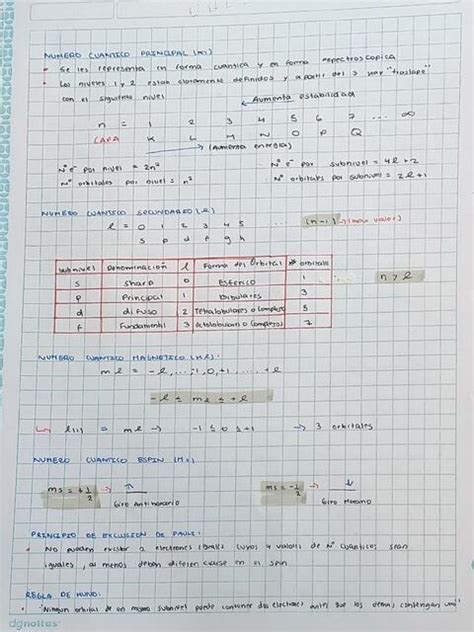 NUMERO CUANTICO PRINCIPAL (n)
• Se les representa en forma cuantica y en forma espectroscopica
• Los niveles 1 y 2 estan claramente definidos y a partir del 3 hay "traslape"
con el siguiente nivel
← Aumenta estabilidad
n = 1 2 3 4 5 6 7 ... ∞
CAPA K L M N O P Q
→ (Aumenta energia)
Nº e⁻ por nivel = 2n² Nº e⁻ por subnivel = 4l + 2
Nº orbitales por nivel = n² Nº orbitales por subnivel = 2l+1
NUMERO CUANTICO SECUNDARIO (l)
l = 0 1 2 3 4 5 ... (n-1) → (max valor)
s p d f g h
subnivel Denominación l Forma del Orbital # orbitals
s sharp 0 Esferico 1
p Principal 1 Bilobulares 3
d difuso 2 Tetralobulares o (complejo) 5
f Fundamental 3 octolobulares o (complejo) 7
n > l
NUMERO CUANTICO MAGNETICO (ml)
ml = -l, ..., -1, 0, +1, ... +l
-l ≤ ml ≤ +l
↳ l(1) = ml → -1 ≤ 0 ≤ +1 → 3 orbitales
NUMERO CUANTICO ESPIN (Ms)
ms = +1/2 → ↑ ms = -1/2 → ↓
Giro Antihorario Giro Horario
PRINCIPIO DE EXCLUSION DE PAULI:
• No pueden existir 2 electrones cuyos 4 valores de Nº cuanticos sean
iguales, al menos deben diferenciarse en el spin
REGLA DE HUND:
• "Ningun orbital de un mismo subnivel puede contener dos electrones antes que los demas contengan uno"
dgnottas